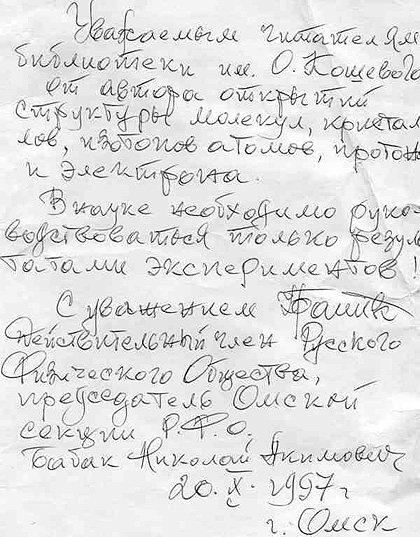 Уважаемым читателям
библиотеки им. О. Кошевого
от автора открытий
структуры молекул, кристал
лов, изотопов атомов, протон
и электрона.
В науке необходимо руко
водствоваться только резул
татами экспериментов!
С уважением
Действительный член Русского
Физического Общества,
председатель Омской
секции Р.Ф.О.
Бабак Николай Якимович
20. X. 1997 г
г. Омск